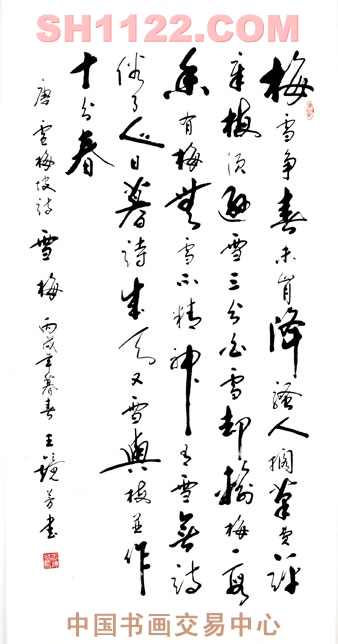 SH1122.COM
梅雪争春未肯降骚人搁笔费评
章梅须逊雪三分白雪却输梅一段
香有梅無雪不精神有雪無诗
俗了人日暮诗成天又雪與梅並作
十分春
唐 盧梅坡诗 雪梅 丙戌年暮春王镜芳书
中国书画交易中心